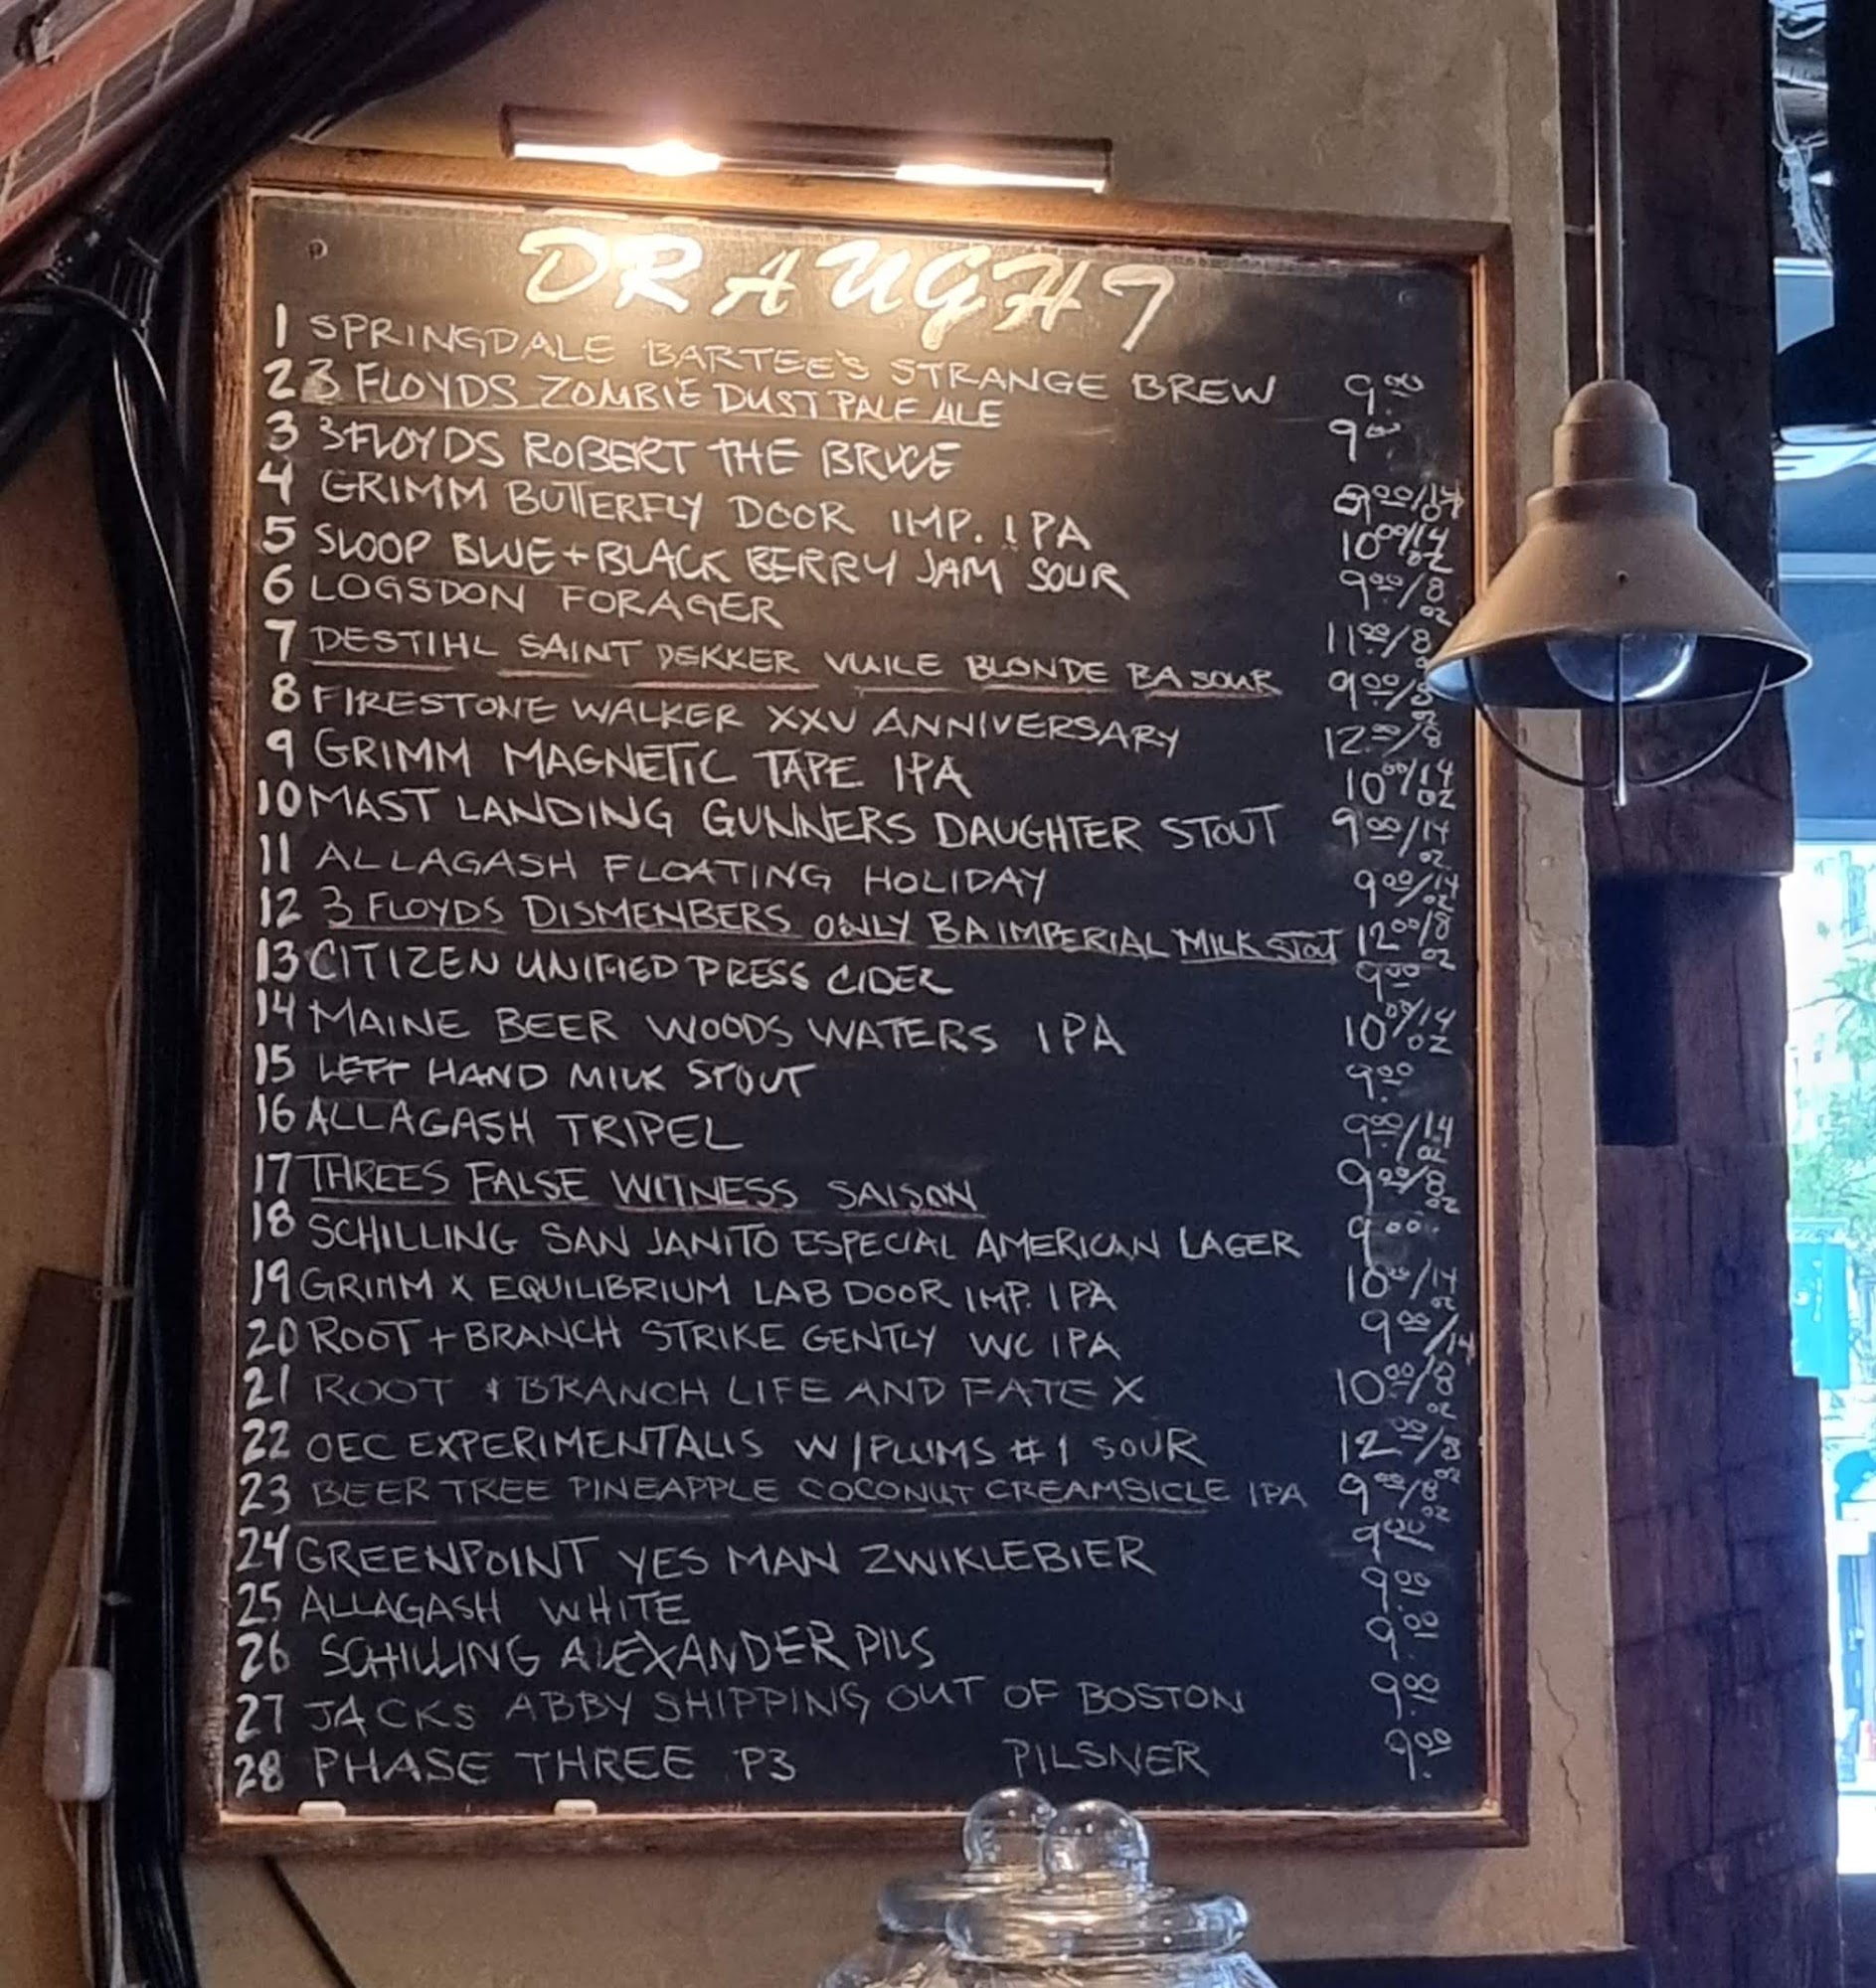 DRAUGHT
1 SPRINGDALE BARTEE'S STRANGE BREW 9.00
2 3 FLOYDS ZOMBIE DUST PALE ALE 9.00
3 3 FLOYDS ROBERT THE BRUCE 9.00/14 OZ
4 GRIMM BUTTERFLY DOOR IMP. IPA 10.00/14 OZ
5 SLOOP BLUE + BLACK BERRY JAM SOUR 9.00/8 OZ
6 LOGSDON FORAGER 11.00/8
7 DESTIHL SAINT DEKKER VUILE BLONDE BA SOUR 9.00/8 OZ
8 FIRESTONE WALKER XXV ANNIVERSARY 12.00/8
9 GRIMM MAGNETIC TAPE IPA 10.00/14 OZ
10 MAST LANDING GUNNERS DAUGHTER STOUT 9.00/14 OZ
11 ALLAGASH FLOATING HOLIDAY 9.00/14 OZ
12 3 FLOYDS DISMENBERS ONLY BA IMPERIAL MILK STOUT 12.00/8 OZ
13 CITIZEN UNIFIED PRESS CIDER 9.00
14 MAINE BEER WOODS WATERS IPA 10.00/14 OZ
15 LEFT HAND MILK STOUT 9.00
16 ALLAGASH TRIPEL 9.00/14 OZ
17 THREES FALSE WITNESS SAISON 9.00/8 OZ
18 SCHILLING SAN JANITO ESPECIAL AMERICAN LAGER 9.00
19 GRIMM X EQUILIBRIUM LAB DOOR IMP. IPA 10.00/14 OZ
20 ROOT + BRANCH STRIKE GENTLY WC IPA 9.00/14
21 ROOT + BRANCH LIFE AND FATE X 10.00/8 OZ
22 OEC EXPERIMENTALIS W/PLUMS #1 SOUR 12.00/8 OZ
23 BEER TREE PINEAPPLE COCONUT CREAMSICLE IPA 9.00/8 OZ
24 GREENPOINT YES MAN ZWIKLEBIER 9.00
25 ALLAGASH WHITE 9.00
26 SCHILLING ALEXANDER PILS 9.00
27 JACKS ABBY SHIPPING OUT OF BOSTON 9.00
28 PHASE THREE P3 PILSNER 9.00